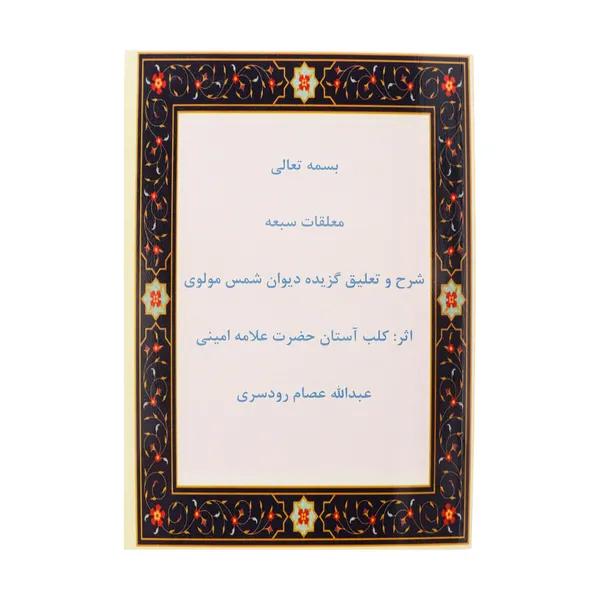 بسمه تعالی
معلقات سبعه
شرح و تعلیق گزیده دیوان شمس مولوی
اثر: کلب آستان حضرت علامه امینی
عبدالله عصام رودسری